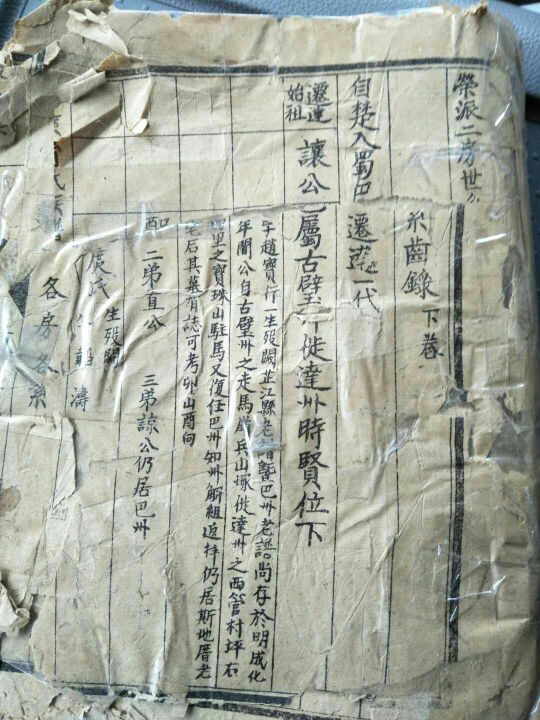 榮派二房世
系齒錄 下卷
自楚入蜀巴
遷達一代
遷達始祖 讓公 屬古壁 徙達州時賢位下
字趙寳行一生殁闕芷江縣老 暨巴州老譜尚存於明成化
年間公自古璧州之走馬 兵山塚徙達州之西管村坪右
里之寶珠山駐馬又復任巴州知州解組返梓仍居斯地厝老
宅后其墓有誌可考卯山酉向
配 二弟直公 三弟諒公仍居巴州
庹氏 生殁闕
生 韜 濤
各房各系